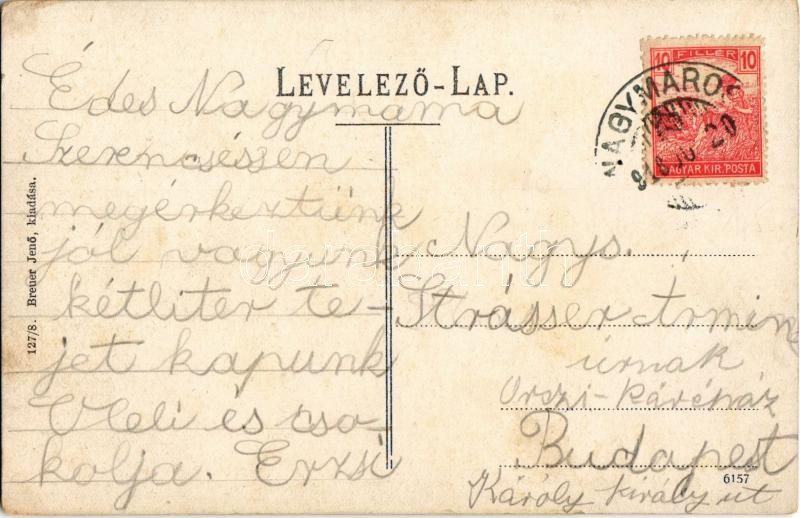 LEVELEZŐ-LAP.
Édes Nagymama
Szerencséssen
megérkeztünk
jól vagyunk
kétliter te-
jet kapunk
Öleli és cso-
kolja. Erzsi
Nagys.
Strásser Armin
úrnak
Orczi-kávéház
Budapest
Károly király út
10 FILLÉR 10
MAGYAR KIR. POSTA
NAGYMAROS
127/8. Breuer Jenő, kiadása.
6157